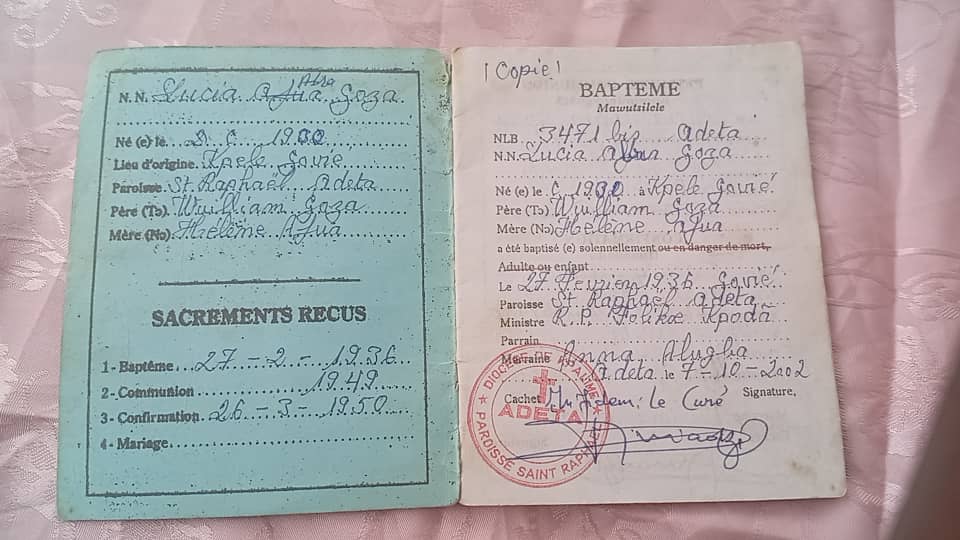 N. N. Lucia Afua Goza
Abra
Né (e) le D. C. 1930
Lieu d'origine Kpele Govié
Paroisse St. Raphaël Adeta
Père (To) Wulliam Goza
Mère (No) Helène Afua
SACREMENTS RECUS
1 - Baptême 27 - 2 - 1936
2 - Communion 1949
3 - Confirmation 26 - 3 - 1950
4 - Mariage
! Copie !
BAPTEME
Mawutsilele
NLB 3471 bis Adeta
N.N. Lucia Goza
Né (e) le C 1930 à Kpele Govié
Père (To) Wulliam Goza
Mère (No) Helène Afua
a été baptisé (e) solennellement ou en danger de mort,
Adulte ou enfant
Le 27 Fevrier 1936 Govié
Paroisse St. Raphaël Adeta
Ministre R. P. Kpoda
Parrain
Marraine Anna Alugba
Adeta le 7 - 10 - 2002
Cachet le Curé Signature,
DIOCESE KPALIME
ADETA
PAROISSE SAINT RAPHAEL